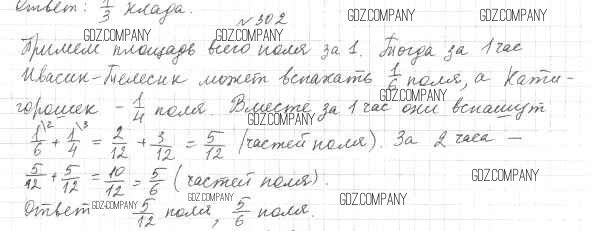 Ответ: 1/3 клада.
№302
GDZ.COMPANY GDZ.COMPANY
GDZ.COMPANY GDZ.COMPANY
Примем площадь всего поля за 1. Тогда за 1 час
Ивасик-Телесик может вспахать 1/6 поля, а Кати-
GDZ.COMPANY
горошек - 1/4 поля. Вместе за 1 час они вспашут
GDZ.COMPANY
1\2/6 + 1\3/4 = 2/12 + 3/12 = 5/12 (частей поля). За 2 часа —
5/12 + 5/12 = 10/12 = 5/6 (частей поля).
GDZ.COMPANY
GDZ.COMPANY GDZ.COMPANY GDZ.COMPANY
Ответ 5/12 поля, 5/6 поля.